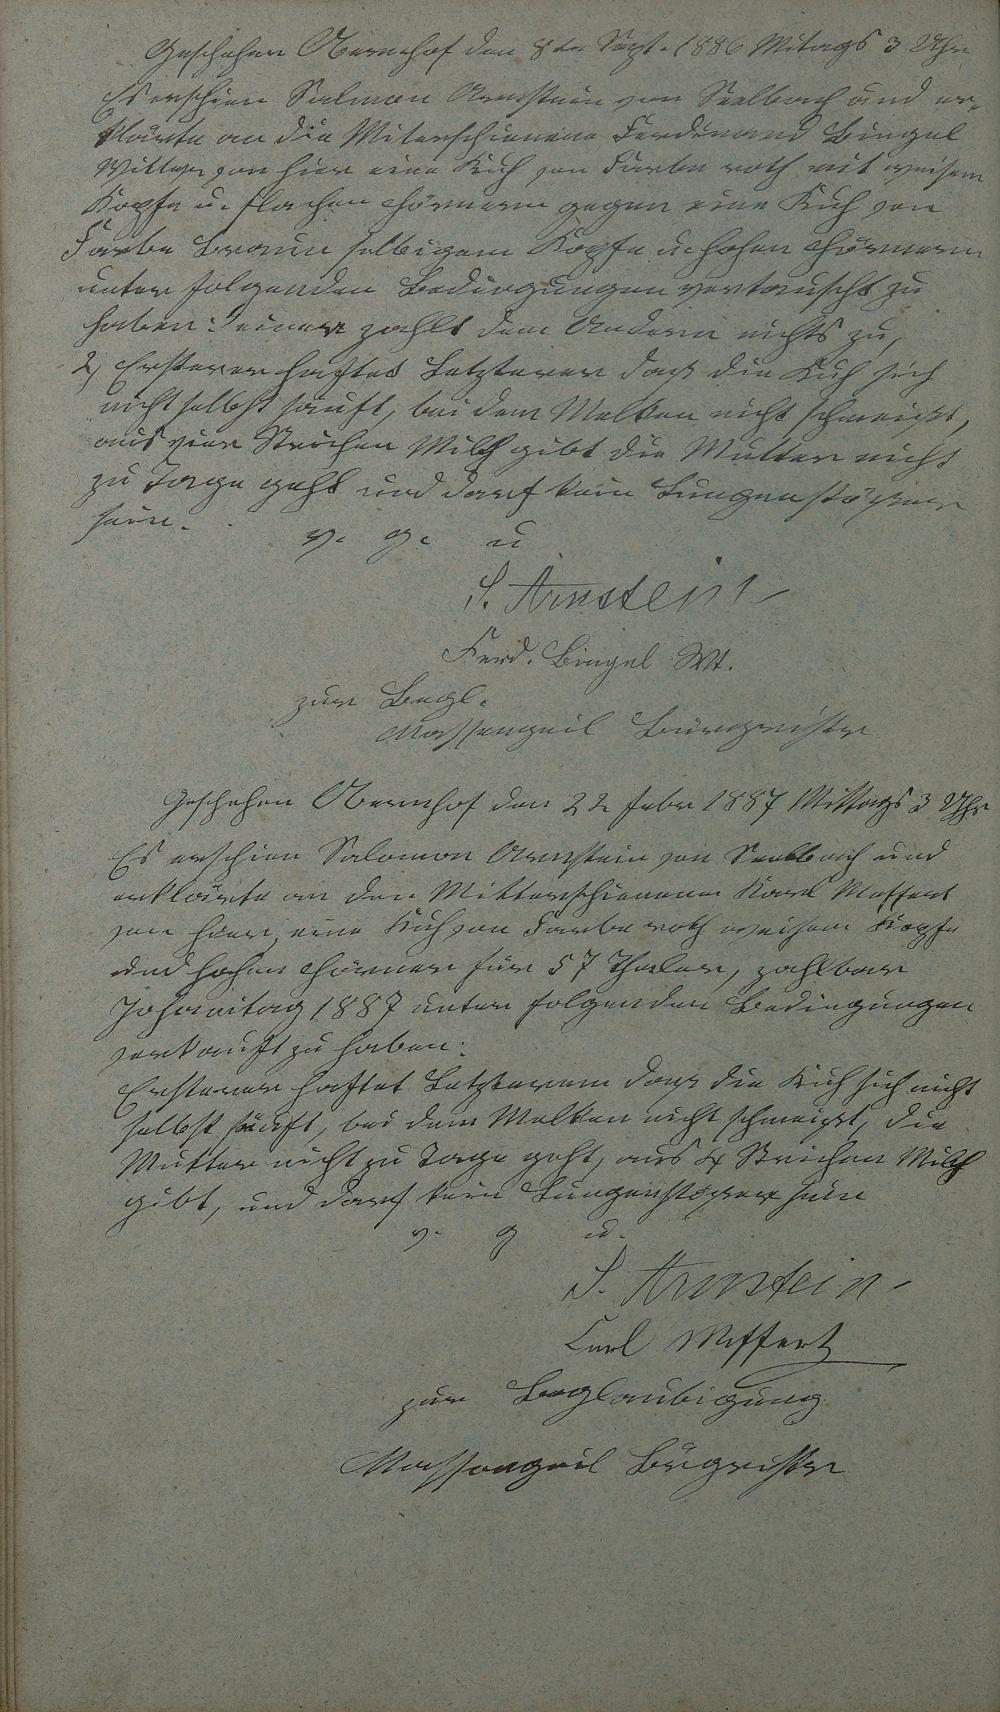 Geschehen Obernhof den 8ten Sept. 1886 Mitags 3 Uhr
Es erschien Salmon Arnstein von Seelbach und er-
klärte an die Miterschienene Ferdinand Bingel
Wittwe von hier eine Kuh von Farbe roth mit weisem
Kopfe u. flachen Hörnern gegen eine Kuh von
Farbe braun selbigem Kopfe u. hohen Hörnern
unter folgenden Bedingungen vertauscht zu
haben: keiner zahlt dem Andern nichts zu,
2, Ersterer haftet Letzterer daß die Kuh sich
nicht selbst säuft, bei dem Melken nicht schmeißt,
aus vier Strichen Milch gibt die Mutter nicht
zu Tage geht und darf kein Lungenstößer
sein.
v. g. u
S. Arnstein
Ferd. Bingel Wt.
zur Begl.
Massengeil Bürgmister
Geschehen Obernhof den 22 Febr 1887 Mittags 3 Uhr
Es erschien Salomon Arnstein von Seelbach und
erklärte an den Mitterschienenen Karl Meffert
von hier, eine Kuh von Farbe roth weisem Kopfe
und hohen Hörner für 57 Thaler, zahlbar
Johanitag 1887 unter folgenden Bedingungen
verkauft zu haben:
Ersterer haftet Letzterem daß die Kuh sich nicht
selbst säuft, bei dem Melken nicht schmeißt, die
Mutter nicht zu Tage geht, aus 4 Strichen Milch
gibt, und darf kein Lungenstößer sein
v. g u.
S. Arnstein
Carl Meffert
zur Beglaubigung
Massengeil Bürgmister